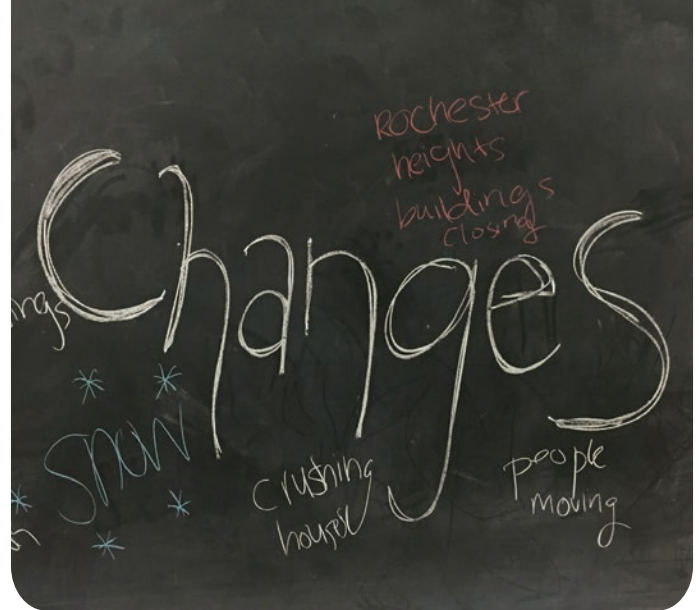 Rochester
heights
buildings
closing
Changes
ings
snow
crushing
people
moving